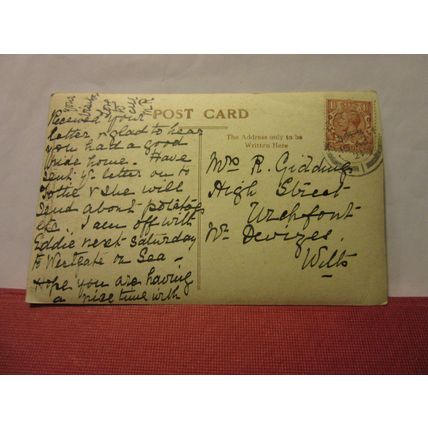 Received your
letter & glad to hear
you had a good
ride home. Have
sent yr letter on to
Tottie & she will
send about potatoes
etc. I am off with
Eddie next Saturday
to Westgate on Sea -
Hope you are having
a nice time with
POST CARD
The Address only to be
Written Here
Mrs R. Giddings
High Street
Urchfont
Nr Devizes.
Wilts